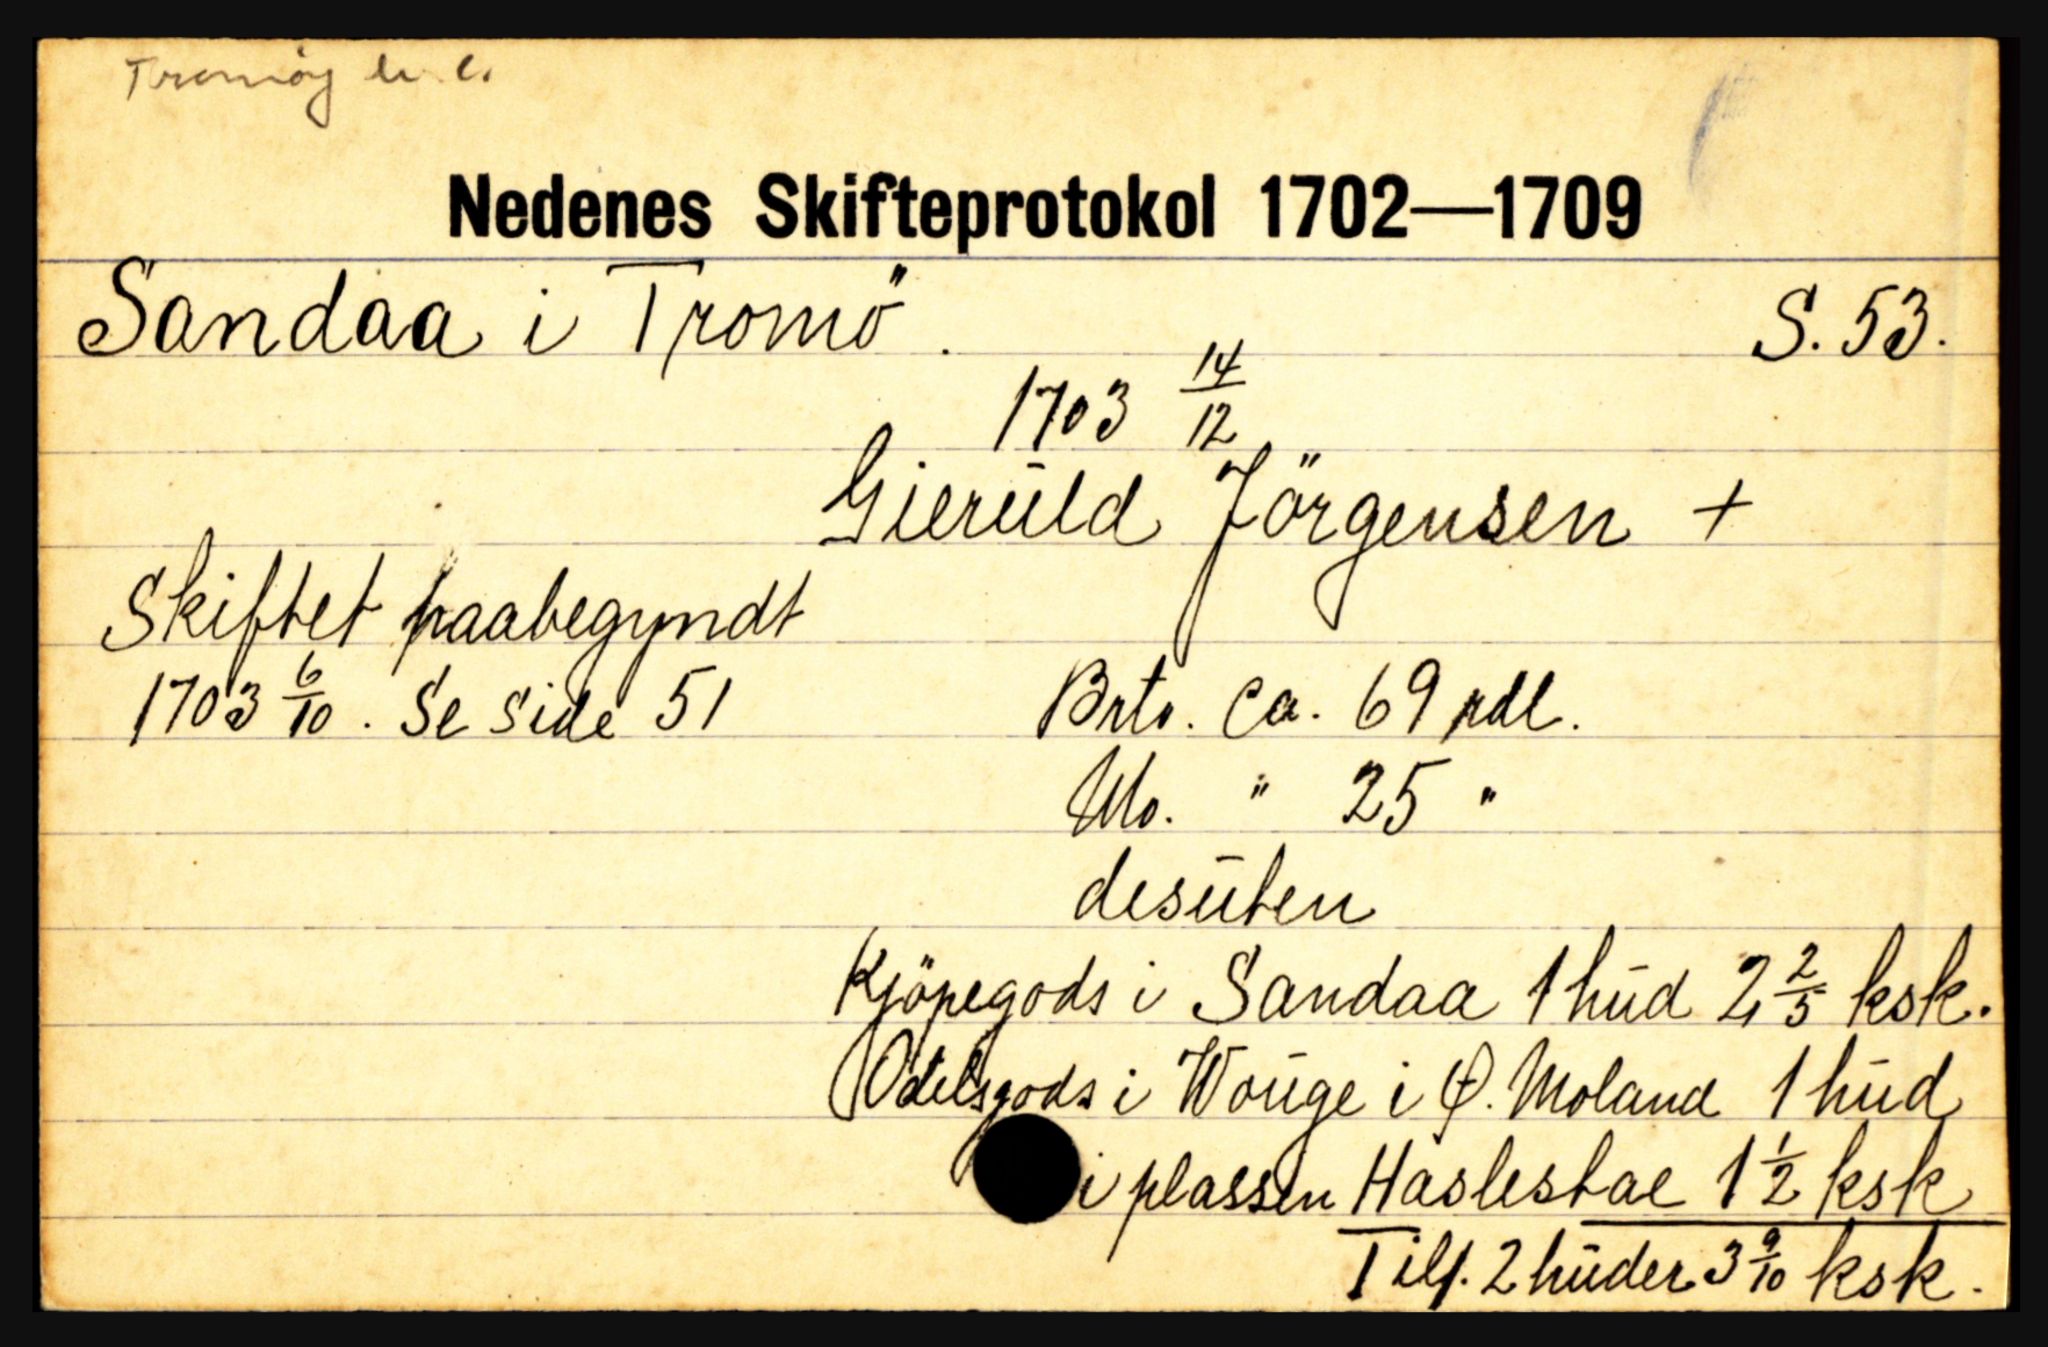 Tromøy
Nedenes Skifteprotokol 1702—1709
Sandaa i Tromö. S. 53.
1703 14/12
Gieruld Jörgensen +
Skiftet paabegyndt
1703 6/10. Se side 51
Brto. ca. 69 rdl.
No. " 25 "
desuten
Kjöpegods i Sandaa 1 hud 2 2/5 ksk.
Odelsgods i Wouge i Ø. Moland 1 hud
i plassen Haslestae 1 1/2 ksk
Tils. 2 huder 3 9/10 ksk.